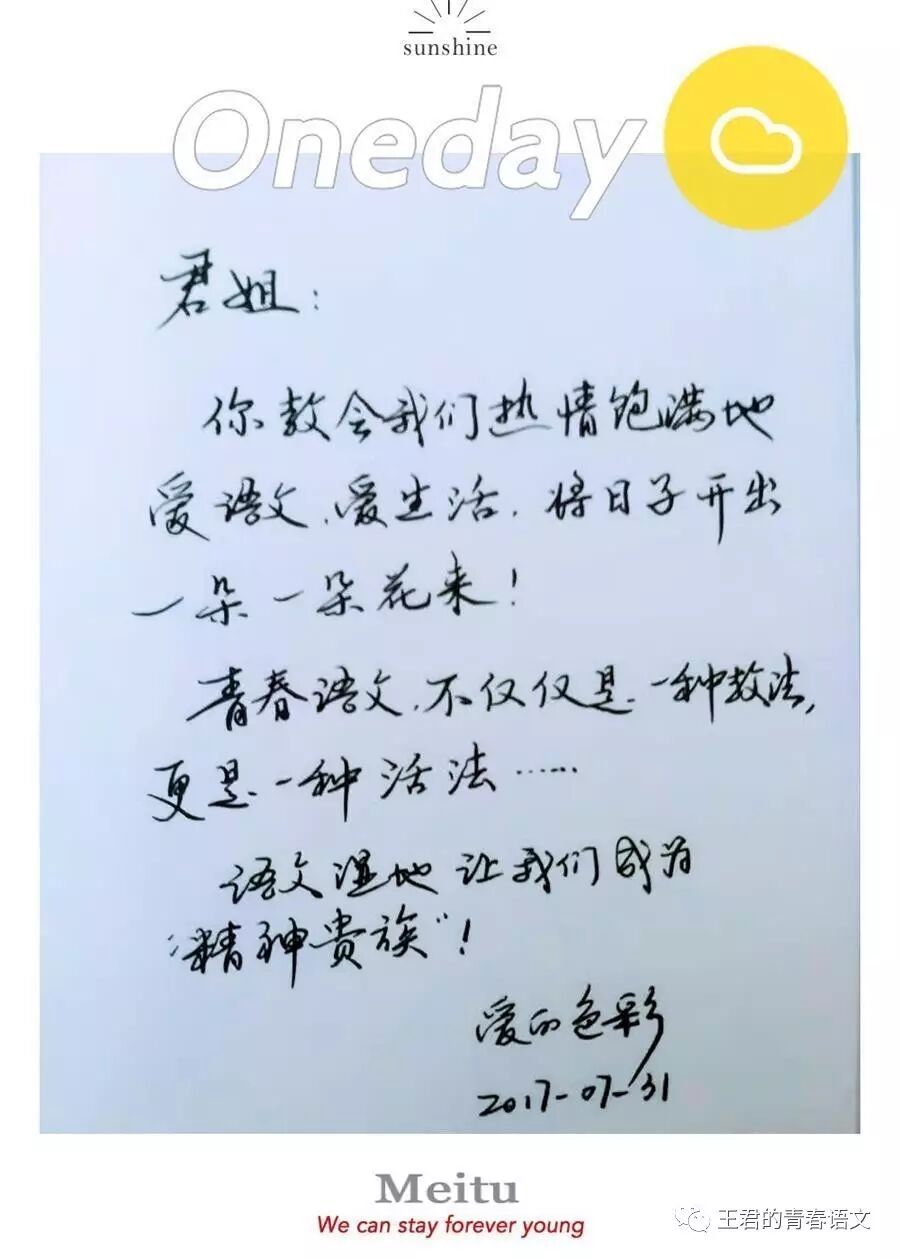 sunshine
Oneday
君姐:
你教会我们热情饱满地
爱语文、爱生活,将日子开出
一朵一朵花来!
青春语文,不仅仅是一种教法,
更是一种活法……
语文湿地让我们成为
“精神贵族”!
爱的色彩
2017-07-31
Meitu
We can stay forever young
王君的青春语文